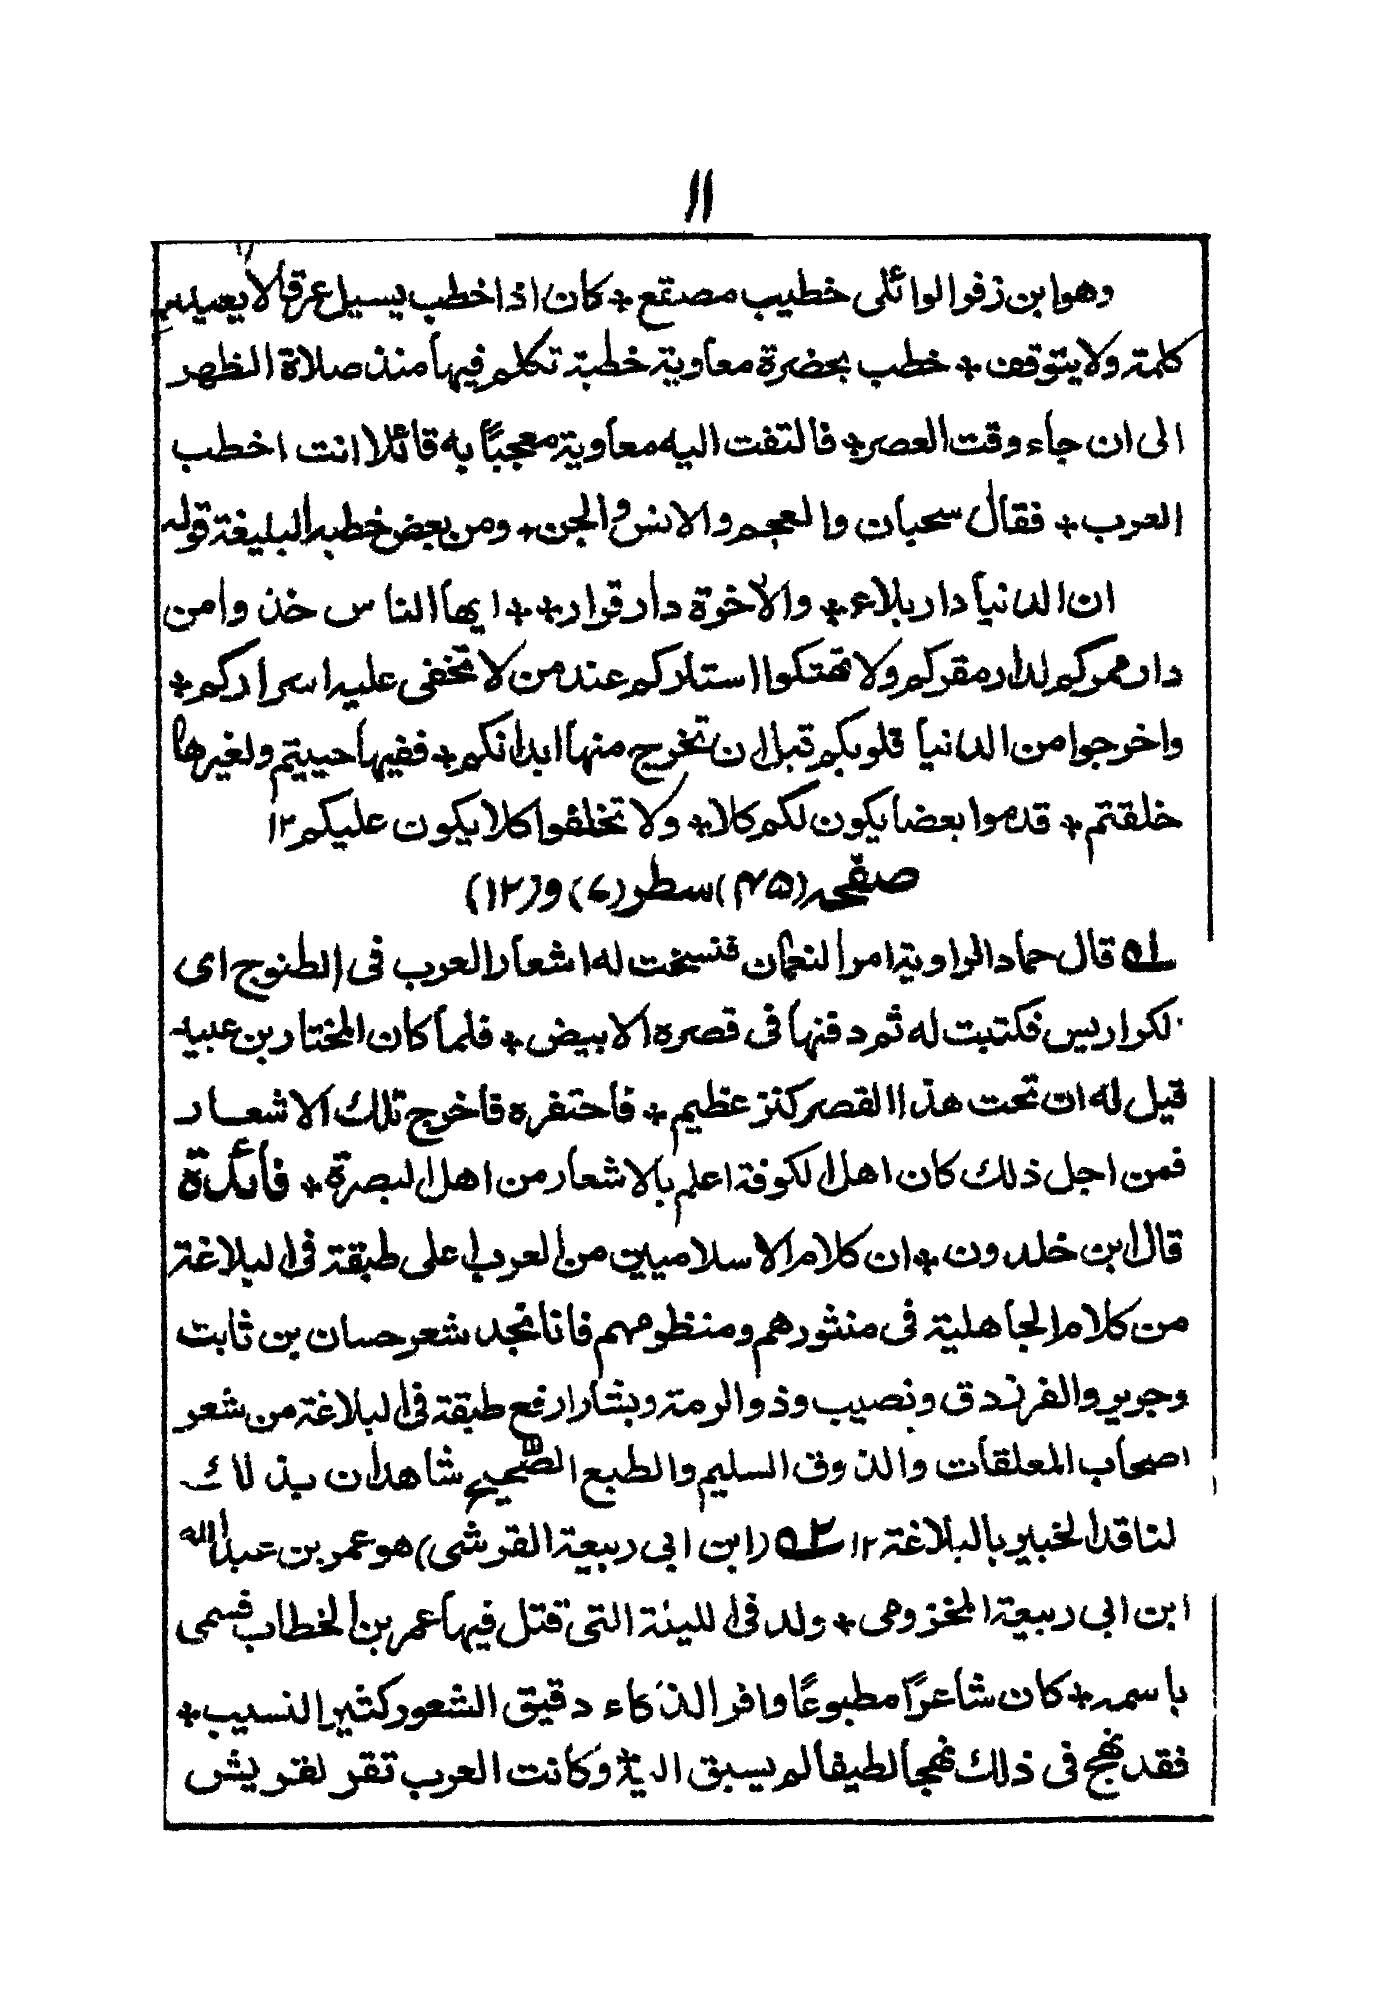 ١١
وهو ابن زفر الوائلى خطيب مصقع * كان اذا خطب يسيل عرقا لا يعيد
كلمة ولا يتوقف * خطب بحضرة معاوية خطبة تكلم فيها منذ صلاة الظهر
الى ان جاء وقت العصر * فالتفت اليه معاوية معجبًا به قائلا انت اخطب
العرب * فقال سحبان والعجم والانس والجن * ومن بعض خطبه البليغة قوله
ان الدنيا دار بلاء * والاخرة دار قرار ** ايها الناس خذوا من
دار ممركم لدار مقركم ولا تهتكوا استاركم عند من لا تخفى عليه اسراركم *
واخرجوا من الدنيا قلوبكم قبل ان تخرج منها ابدانكم * ففيها حييتم ولغيرها
خلقتم * قدموا بعضا يكون لكم كلا * ولا تخلفوا كلا يكون عليكم ١٢
صفحه (٤٥) سطر (٤) و (١٢)
١ه قال حماد الراوية امر النعمان فنسخت له اشعار العرب فى الطنوج اى
لكراريس فكتبت له ثم دفنها فى قصره الابيض * فلما كان المختار بن عبيد
قيل له ان تحت هذا القصر كنز عظيم * فاحتفره فاخرج تلك الاشعار
فمن اجل ذلك كان اهل الكوفة اعلم بالاشعار من اهل البصرة * فائدة
قال ابن خلدون * ان كلام الاسلاميين من العرب اعلى طبقة فى البلاغة
من كلام الجاهلية فى منثورهم ومنظومهم فانا نجد شعر حسان بن ثابت
وجرير والفرزدق ونصيب وذو الرمة وبشار ارفع طبقة فى البلاغة من شعر
اصحاب المعلقات والذوق السليم والطبع الصحيح شاهدان بذلاك
لناقد الخبير بالبلاغة ١٢ ٢ه (ابن ابى ربيعة القرشى) هو عمر بن عبدالله
ابن ابى ربيعة المخزومى * ولد فى الليلة التى قتل فيها عمر بن الخطاب فسمى
باسمه * كان شاعرًا مطبوعًا وافر الذكاء دقيق الشعور كثير النسيب *
فقد نهج فى ذلك نهجا لطيفا لم يسبق اليه * وكانت العرب تقر لقريش